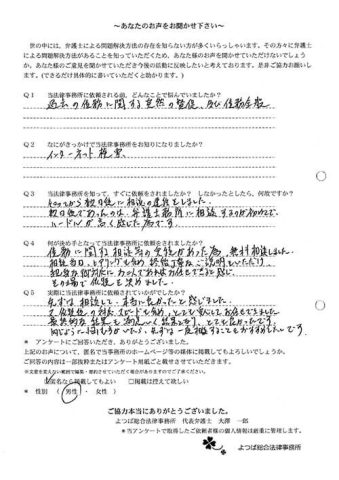 ～あなたのお声をお聞かせ下さい～
世の中には、弁護士による問題解決方法の存在を知らない方が多くいらっしゃいます。その方々に弁護士
による問題解決方法があることを知っていただくため、あなた様のお声をお聞かせていただけないでしょう
か。あなた様のご意見を聞かせていただき今後の活動に反映したいと考えております。是非ご協力お願いし
ます。(できるだけ具体的に書いていただくと助かります。)
Q1 当法律事務所に依頼される前、どんなことで悩んでいましたか？
過去の債務に関する突然の督促、及び債務全般
Q2 なにがきっかけで当法律事務所をお知りになりましたか？
インターネット検索
Q3 当法律事務所を知って、すぐに依頼をされましたか？ しなかったとしたら、何故ですか？
数日後に相談の連絡をしました。
数日後であったのは、弁護士事務所に相談するのが初めてで、
ハードルが高く感じた為です。
Q4 何が決め手となって当法律事務所に依頼をされましたか？
債務に関する相談等の実績があった為、無料相談しました。
相談当日、ヒアリングも含め、説明をいただけ
お任せできると感じ、
その場で依頼を決めました。
Q5 実際に当事務所に依頼されていかがでしたか？
まずは相談して、本当に良かったと感じました。
スピードも含め、とても安心してお任せできました。
とても良かったです。
まずは一度相談することをおすすめしたいです。
＊ アンケートにご回答いただき、ありがとうございました。
上記のお声について、匿名で当事務所のホームページ等の媒体に掲載してもよろしいでしょうか。
ご回答の内容は一部抜粋またはアンケート用紙ごと載せさせていただきます。
※文意を変えない範囲で編集・要約させていただく場合がありますのでご了承ください。
☑匿名なら掲載してもよい □掲載は控えて欲しい
＊ 性別 （ 男性 ・ 女性 ）
ご協力本当にありがとうございました。
よつば総合法律事務所 代表弁護士 大澤 一郎
＊当アンケートで取得したご依頼者様の個人情報は厳重に管理します。
よつば総合法律事務所